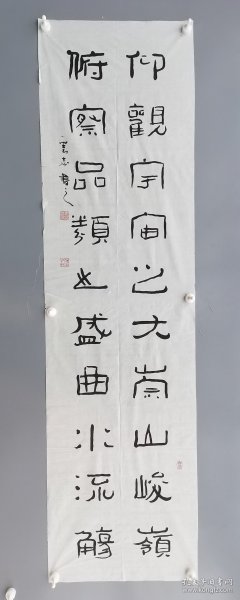 仰觀宇宙之大崇山峻嶺
俯察品類之盛曲水流觴